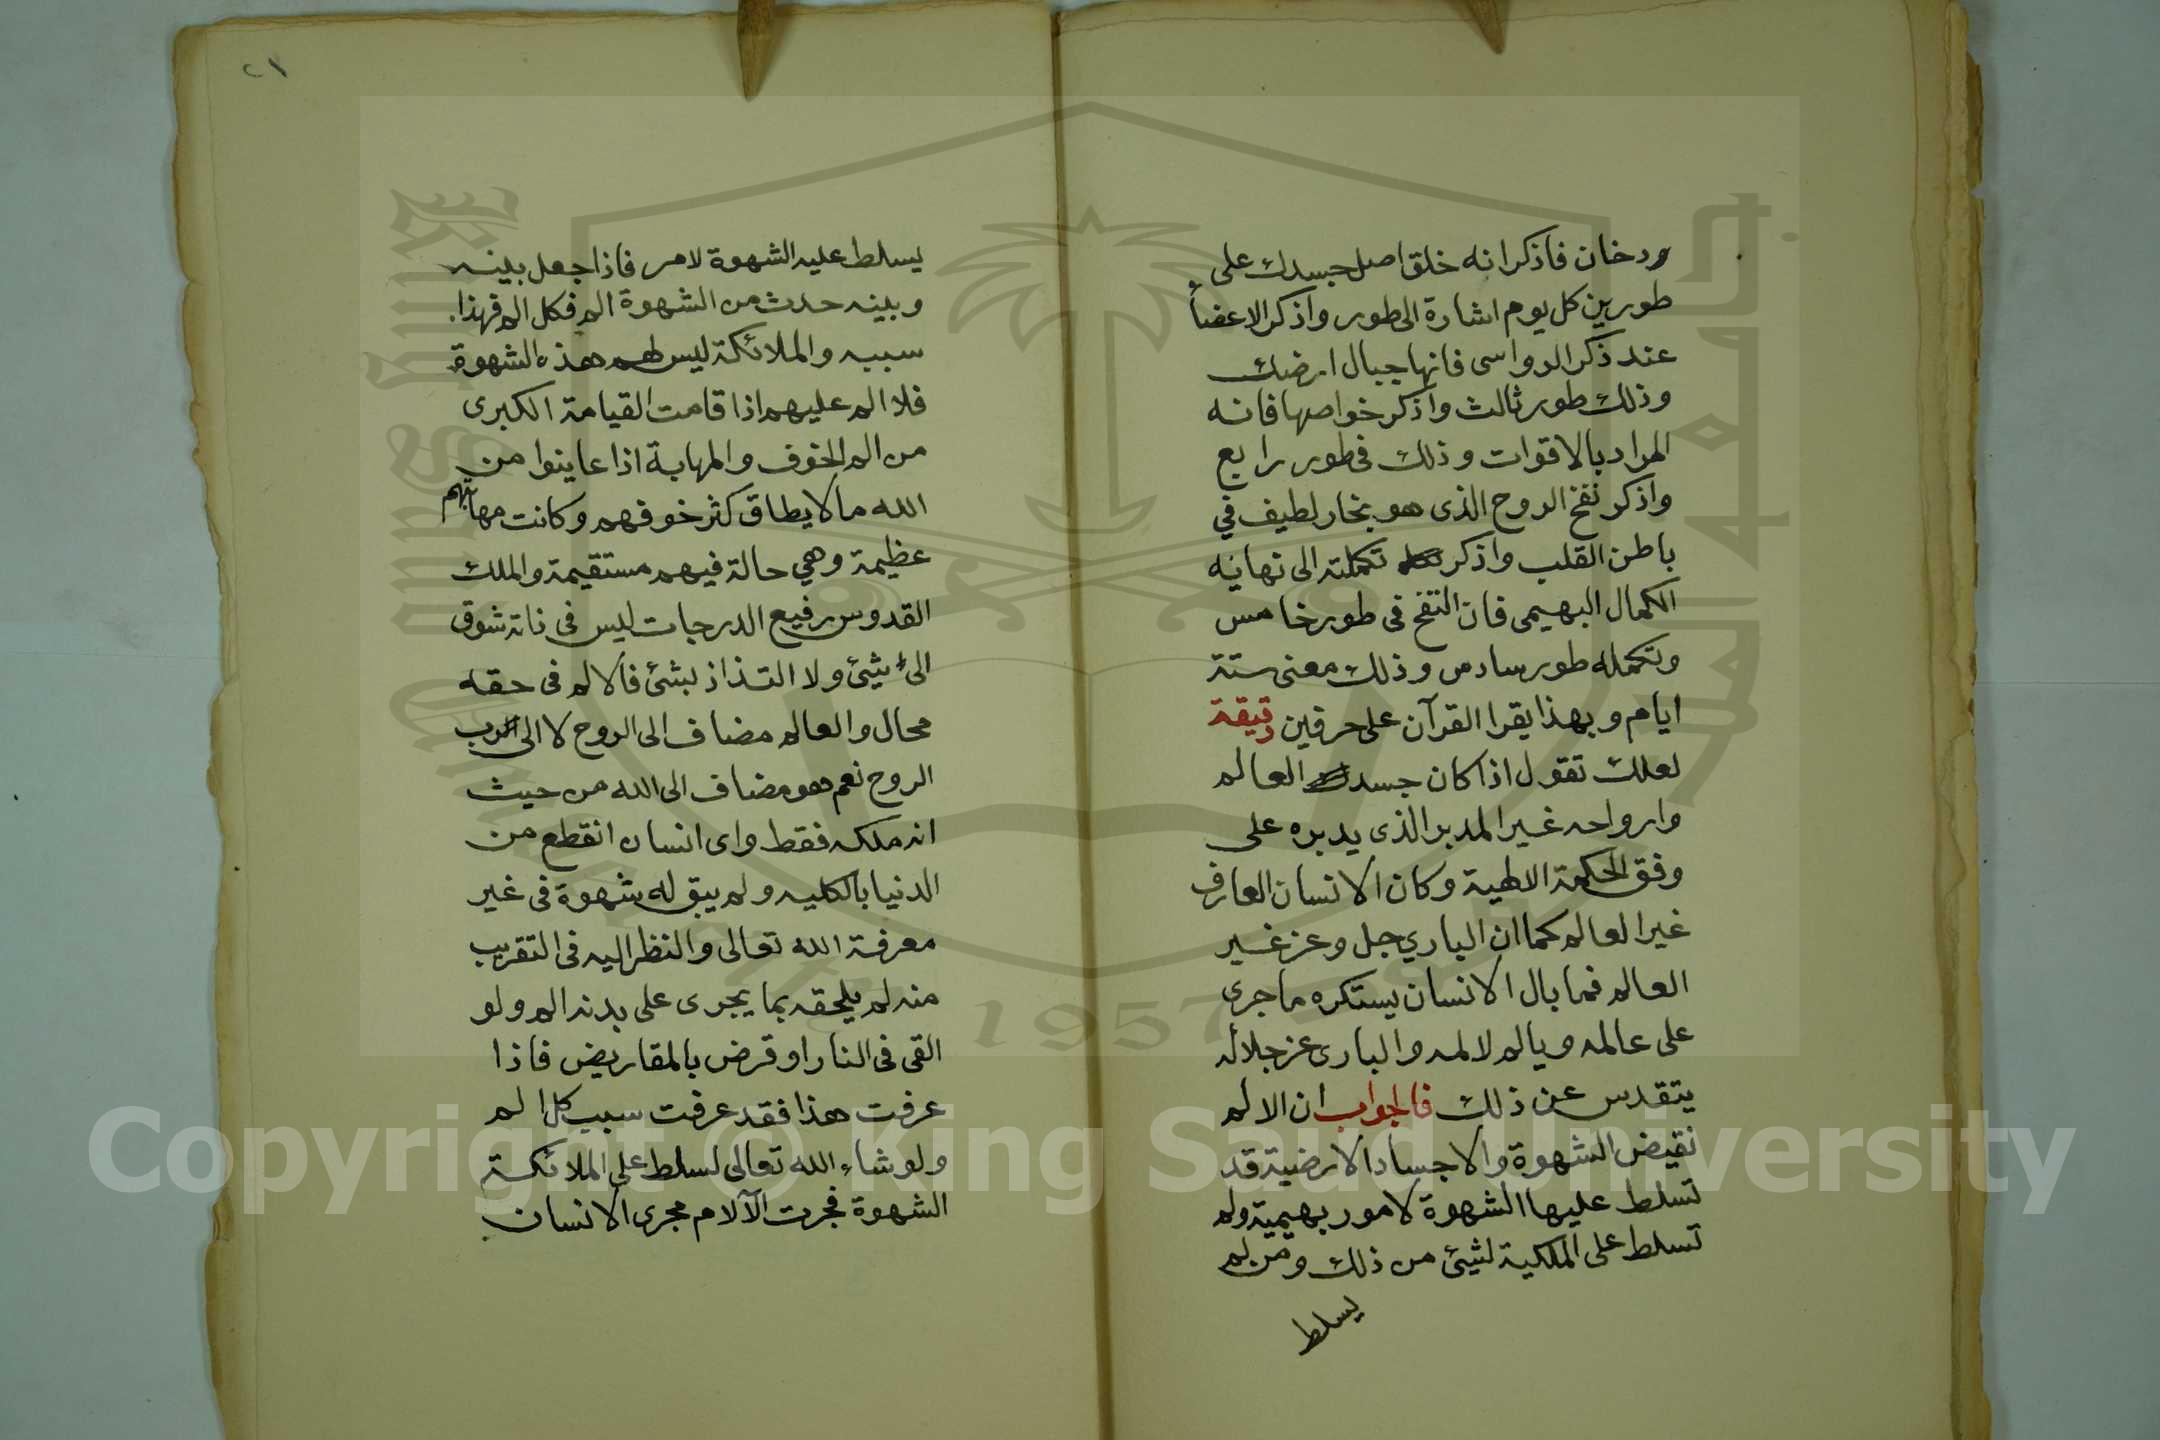 ودخان فاذكر انه خلق اصل جسدك على
طورين كل يوم اشارة الى طور واذكر الاعضأ
عند ذكر الرواسى فانها جبال ارضك
وذلك طور ثالث واذكر خواصها فانه
المراد بالاقوات وذلك فى طور رابع
واذكر نفخ الروح الذى هو بخار لطيف في
باطن القلب واذكر تكملته الى نهايه
الكمال البهيمى فان النفخ فى طور خامس
وتكمله طور سادس وذلك معنى ستة
ايام وبهذا يقرا القرآن على حرفين دقيقة
لعلك تقول اذا كان جسد العالم
وارواحه غير المدبر الذى يدبره على
وفق الحكمة الالهية وكان الانسان العارف
غير العالم كما ان الباري جل وعز غير
العالم فما بال الانسان يستكره ما جرى
على عالمه ويالم لالمه والبارى عز جلاله
يتقدس عن ذلك فالجواب ان الالم
نقيض الشهوة والاجساد الارضية قد
تسلط عليها الشهوة لامور بهيمية ولم
تسلط على الملكية لشيئ من ذلك ومن لم
يسلط
٢١
يسلط عليه الشهوة لامر فاذا جعل بينه
وبينه حدث من الشهوة الم فكل الم فهذا
سببه والملائكة ليس لهم هذه الشهوة
فلا الم عليهم اذا قامت القيامة الكبرى
من الم الخوف والمهابة اذا عاينوا من
الله ما لا يطاق كثر خوفهم وكانت مهابتهم
عظيمة وهي حالة فيهم مستقيمة والملك
القدوس رفيع الدرجات ليس فى ذاته شوق
الى شيئ ولا التذاذ بشئ فالالم فى حقه
محال والعالم مضاف الى الروح لا الى الرب
الروح نعم هو مضاف الى الله من حيث
انه ملكه فقط واى انسان انقطع من
الدنيا بالكليه ولم يبق له شهوة فى غير
معرفة الله تعالى والنظر اليه فى التقريب
منه لم يلحقه بما يجرى على بدنه الم ولو
القى فى النار او قرض بالمقاريض فاذا
عرفت هذا فقد عرفت سبب كل الم
ولو شاء الله تعالى لسلط على الملائكة
الشهوة فجرت الآلام مجرى الانسان
جامعة الملك سعود
King Saud University
1957
Copyright © King Saud University